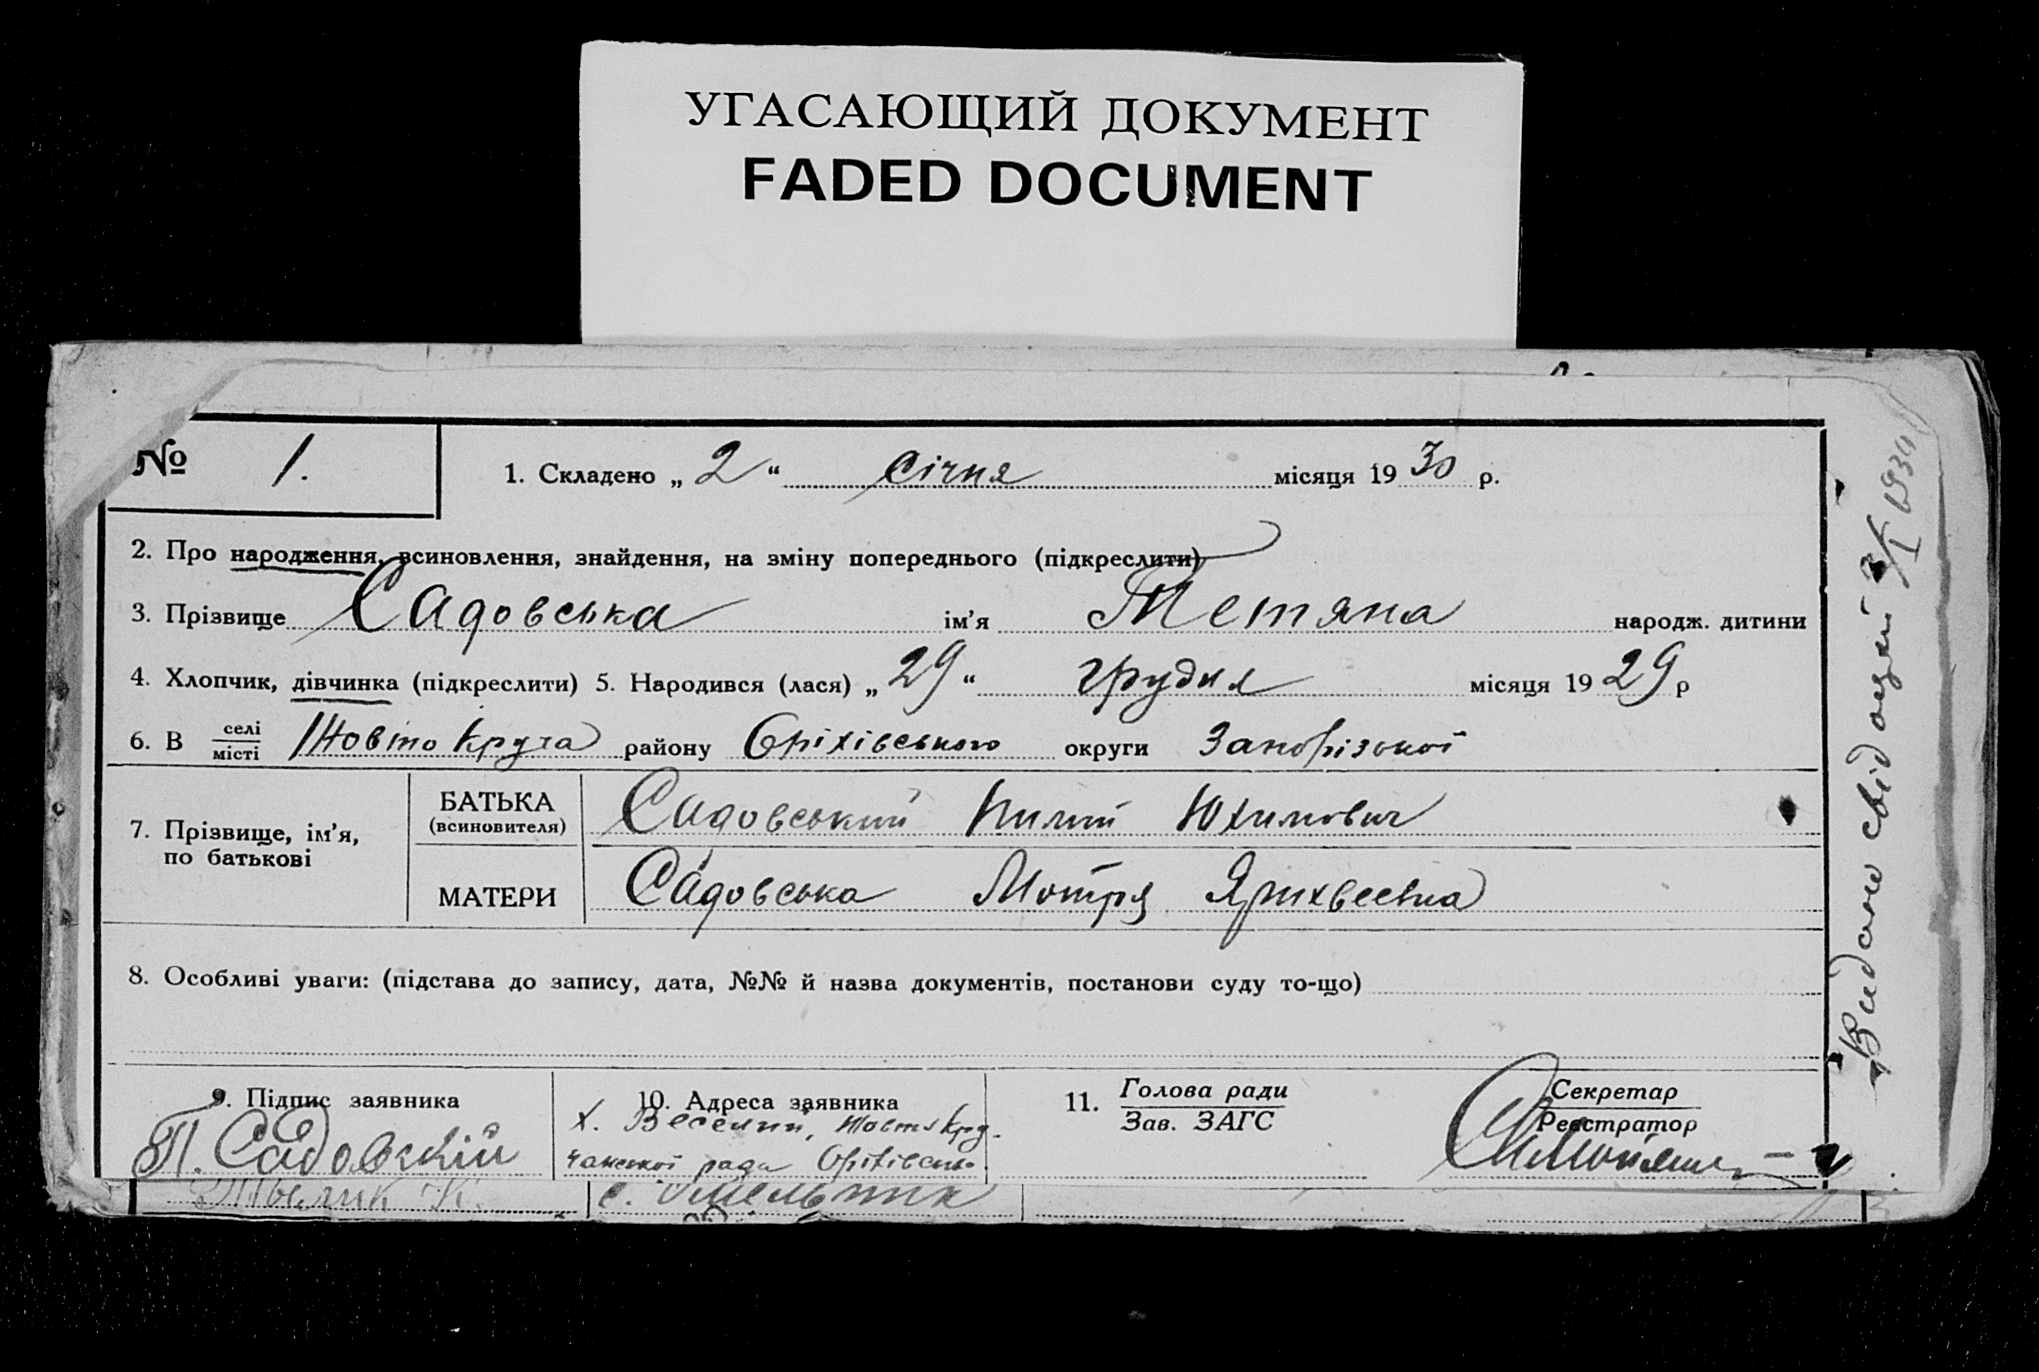 УГАСАЮЩИЙ ДОКУМЕНТ
FADED DOCUMENT
№ 1.
1. Складено „ 2 “ січня місяця 19 30 р.
2. Про народження, всиновлення, знайдення, на зміну попереднього (підкреслити)
3. Прізвище Садовська ім’я Тетяна народж. дитини
4. Хлопчик, дівчинка (підкреслити) 5. Народився (лася) „ 29 “ грудня місяця 19 29 р
6. В селі місті Жовто Круча району Оріхівського округи Запорізької
7. Прізвище, ім’я, по батькові
БАТЬКА (всиновителя) Садовський Юхимович
МАТЕРИ Садовська Мотря
8. Особливі уваги: (підстава до запису, дата, №№ й назва документів, постанови суду то-що)
9. Підпис заявника
П. Садовскій
10. Адреса заявника
х. Веселий, Жовтокру-
чанської ради Оріхівськ.
11. Голова ради
Зав. ЗАГС
Секретар
Реєстратор
с. Омельник
Видано свідоцтв 3/I 1930